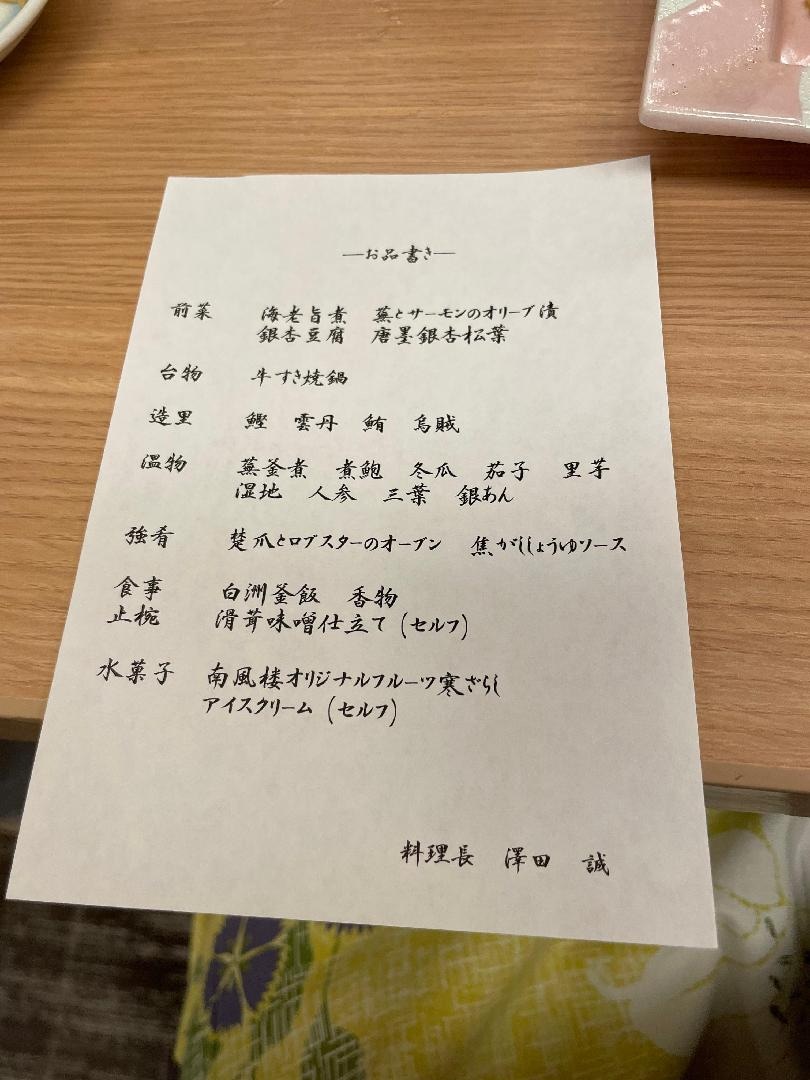 ―お品書き―
前菜 海老旨煮 蕪とサーモンのオリーブ漬
銀杏豆腐 唐墨銀杏松葉
台物 牛すき焼鍋
造里 鰹 雲丹 鮪 烏賊
温物 蕪釜煮 煮鮑 冬瓜 茄子 里芋
湿地 人参 三葉 銀あん
強肴 楚爪とロブスターのオーブン 焦がししょうゆソース
食事 白洲釜飯 香物
止椀 滑茸味噌仕立て (セルフ)
水菓子 南風楼オリジナルフルーツ寒ざらし
アイスクリーム (セルフ)
料理長 澤田 誠